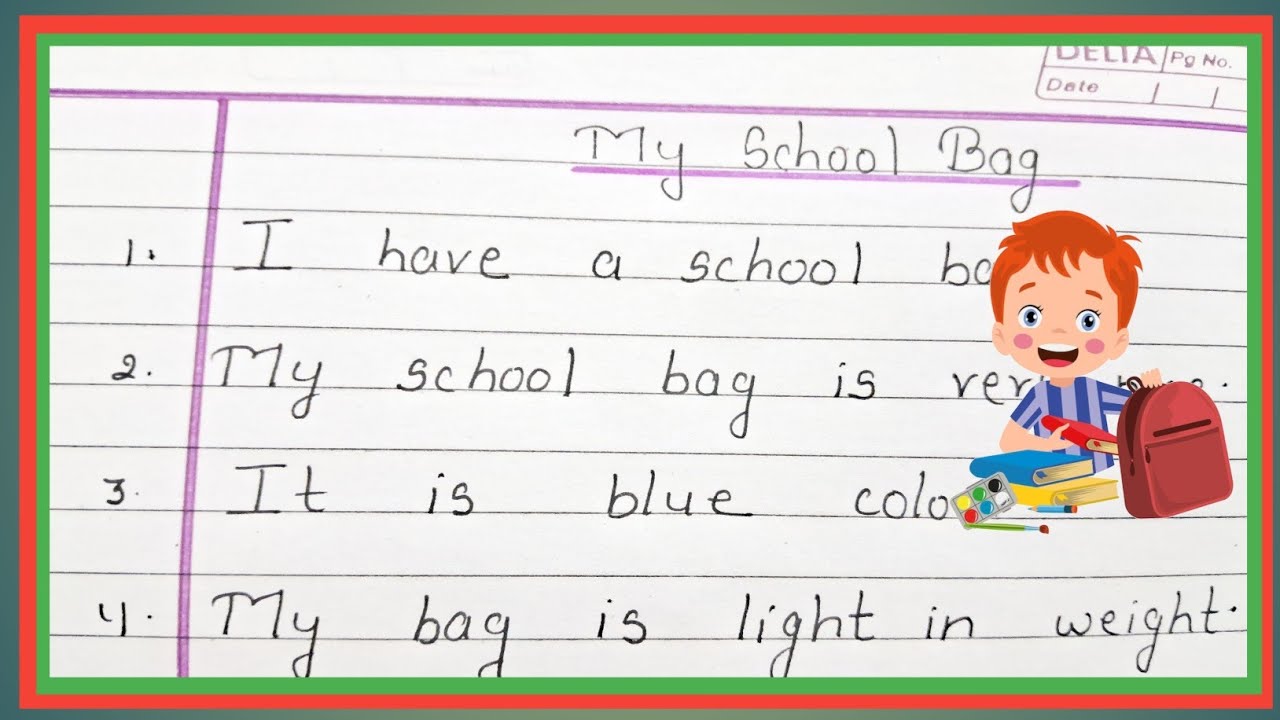 DELTA Pg No.
Date
My School Bag
1. I have a school
2. My school bag is
3. It is blue
4. My bag is light in weight.